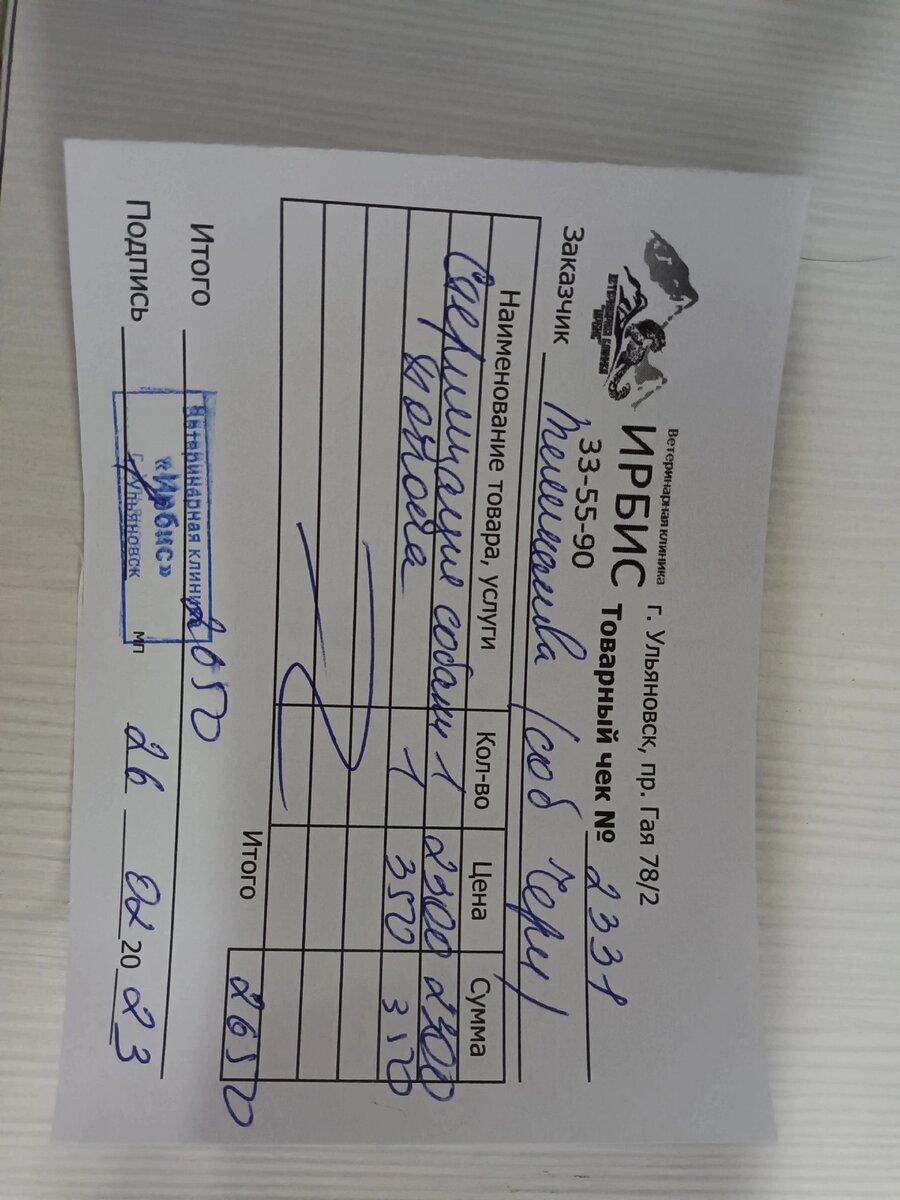 Ветеринарная клиника
ИРБИС
г. Ульяновск, пр. Гая 78/2
ВЕТЕРИНАРНАЯ КЛИНИКА
ИРБИС
33-55-90
Товарный чек № 2331
Заказчик (соб Чери)
Наименование товара, услуги Кол-во Цена Сумма
Стерилизация собаки 1 2300 2300
попона 1 350 350
Итого 2650
Итого 2650
Подпись мп 26 02 20 23
Ветеринарная клиника
«Ирбис»
г. Ульяновск